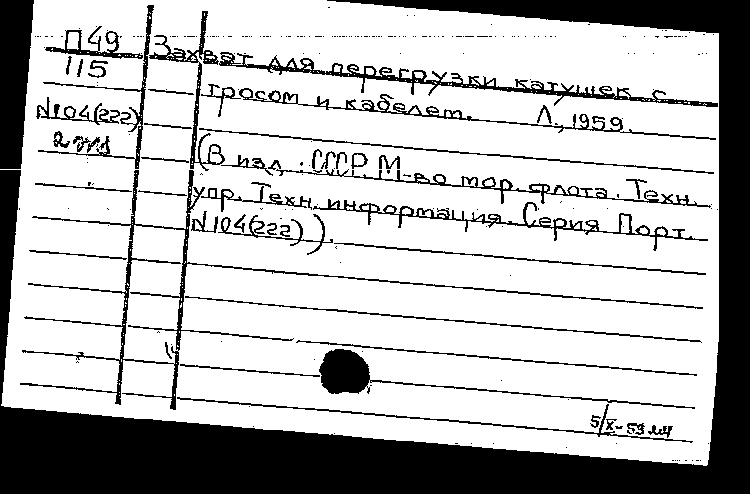 П49
115
N104(222)
2 экз
Захват для перегрузки катушек с
тросом и кабелем. Л., 1959.
(В изд.: СССР. М-во мор. флота. Техн.
упр. Техн. информация. Серия Порт.
N104(222)).
5/X-59